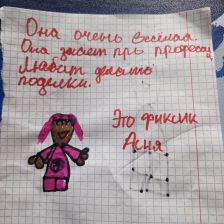 Она очень весёлая.
Она знает про професси
Любит делать
поделки.
Это фиксик
Асня